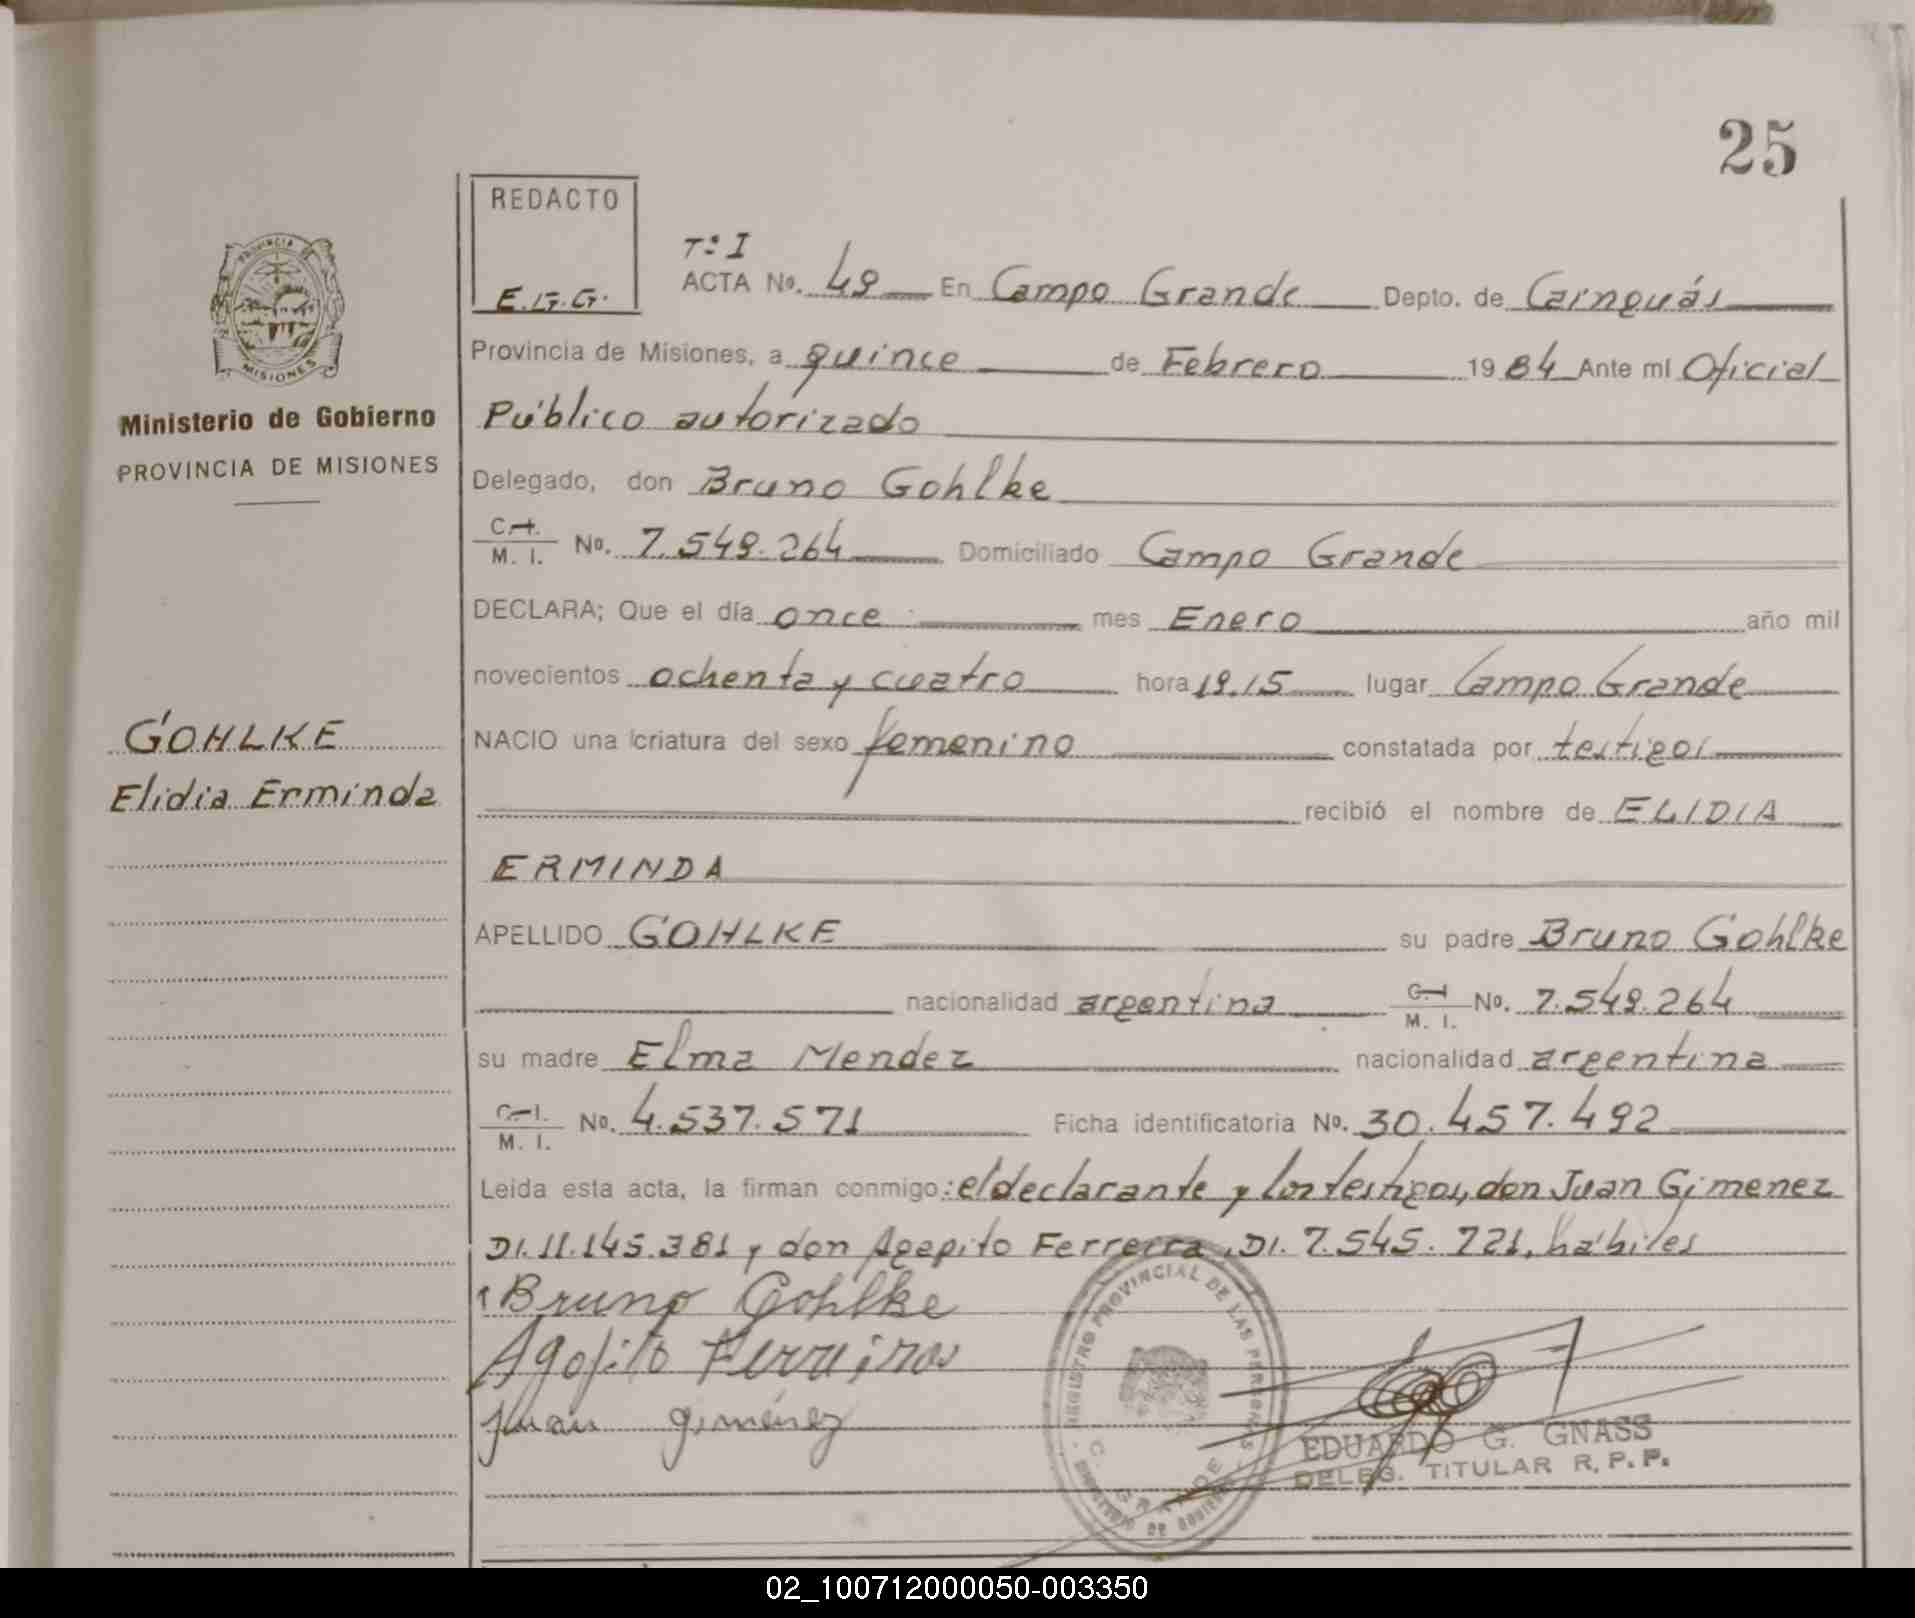 25
REDACTO
E.G.G.
Tº I
ACTA Nº. 49 En Campo Grande Depto. de Cainguás
Provincia de Misiones, a quince de Febrero 1984 Ante mí Oficial
Público autorizado
PROVINCIA DE
MISIONES
Ministerio de Gobierno
PROVINCIA DE MISIONES
Delegado, don Bruno Gohlke
C. I.
M. I. Nº. 7.549.264 Domiciliado Campo Grande
DECLARA; Que el día once mes Enero año mil
novecientos ochenta y cuatro hora 19.15 lugar Campo Grande
GOHLKE
Elidia Erminda
NACIO una criatura del sexo femenino constatada por testigos
recibió el nombre de ELIDIA
ERMINDA
APELLIDO GOHLKE su padre Bruno Gohlke
nacionalidad argentina C. I. M. I. Nº. 7.549.264
su madre Elma Mendez nacionalidad argentina
C. I.
M. I. Nº. 4.537.571 Ficha identificatoria Nº. 30.457.492
Leída esta acta, la firman conmigo: el declarante y los testigos, don Juan Gimenez
DI. 11.145.381 y don Agapito Ferreira, DI. 7.545.721, hábiles
Bruno Gohlke
Juan Giménez
REGISTRO PROVINCIAL DE LAS PERSONAS
C. GRANDE
MINISTERIO DE GOBIERNO
EDUARDO G. GNASS
DELEG. TITULAR R.P.P.
02_100712000050-003350